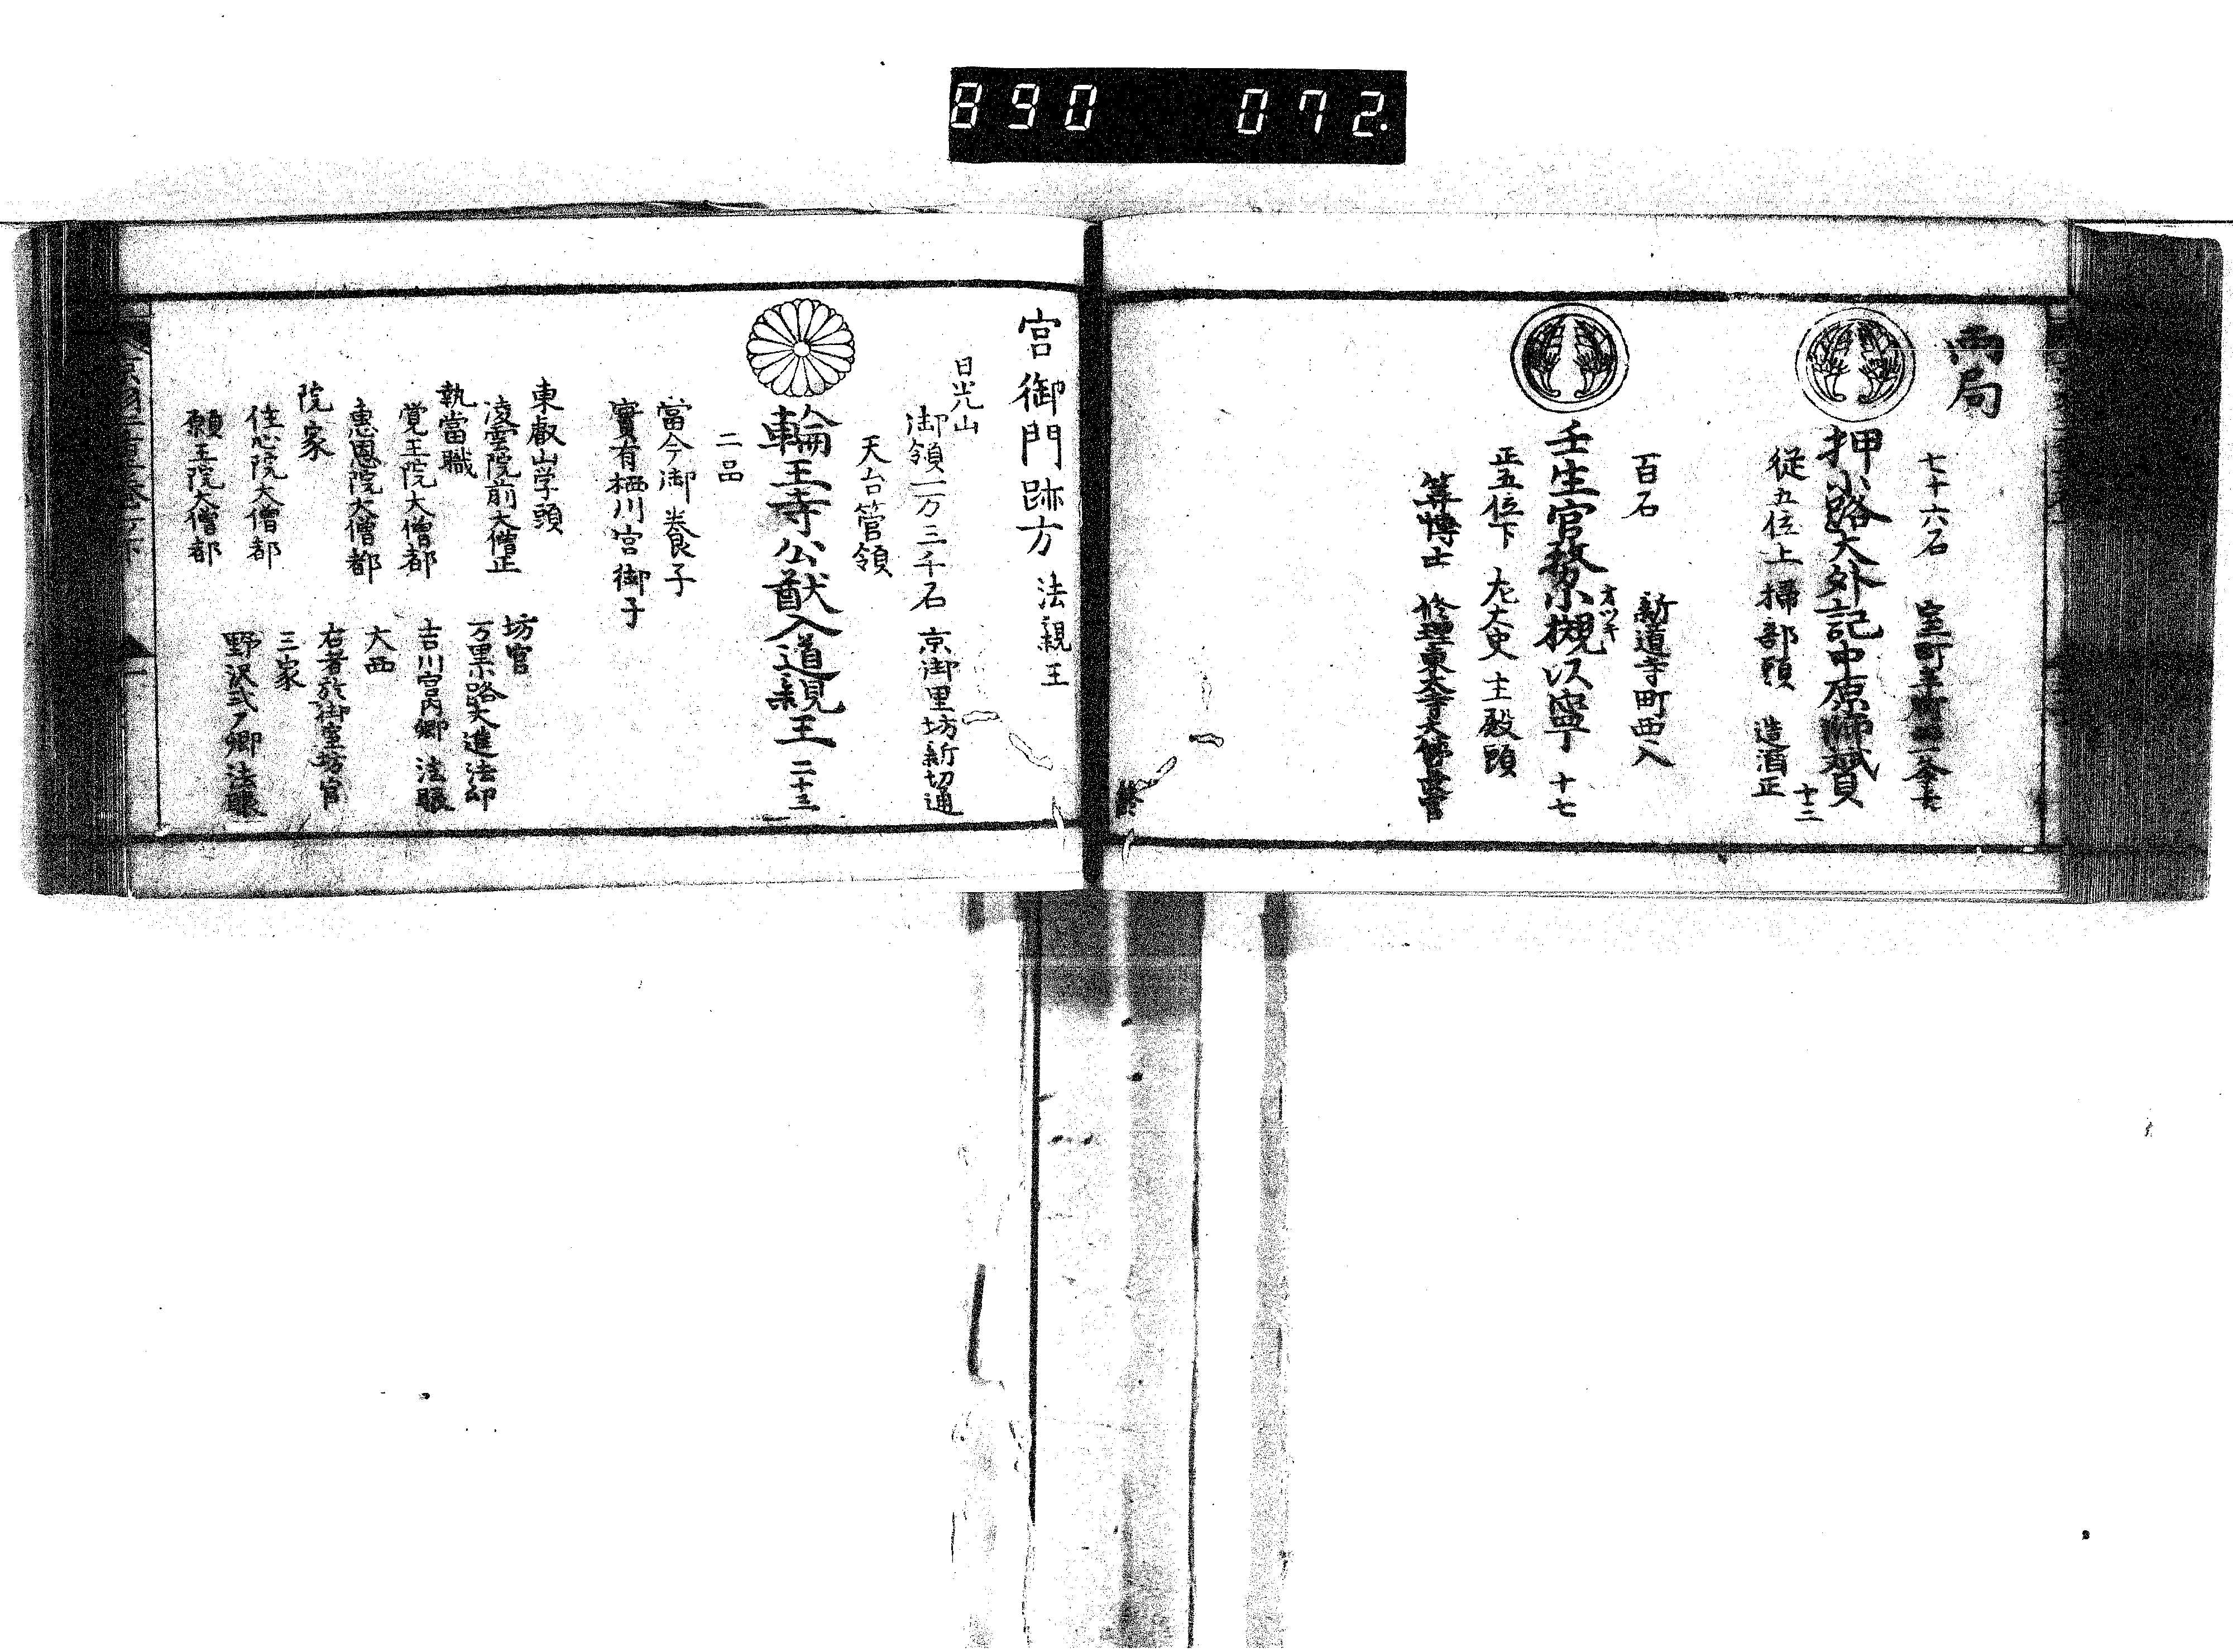 890 072
両局
七十六石 室町
押小路大外記中原師贇 十二
従五位上 掃部頭 造酒正
百石 新道寺町西入
壬生官務小槻以寧 十七
オツキ
正五位下 左大史 主殿頭
算博士 修理東大寺大佛長官
終
宮御門跡方 法親王
日光山
御領一万三千石 京御里坊新切通
天台管領
輪王寺公猷入道親王 二十三
二品
當今御養子
實有栖川宮御子
東叡山学頭
凌雲院前大僧正
執當職
覚王院大僧都
恵恩院大僧都
院家
住心院大僧都
願王院大僧都
坊官
万里小路大進法印
吉川宮内卿 法眼
大西
右者於御室坊官
三家
野沢式ア卿 法眼